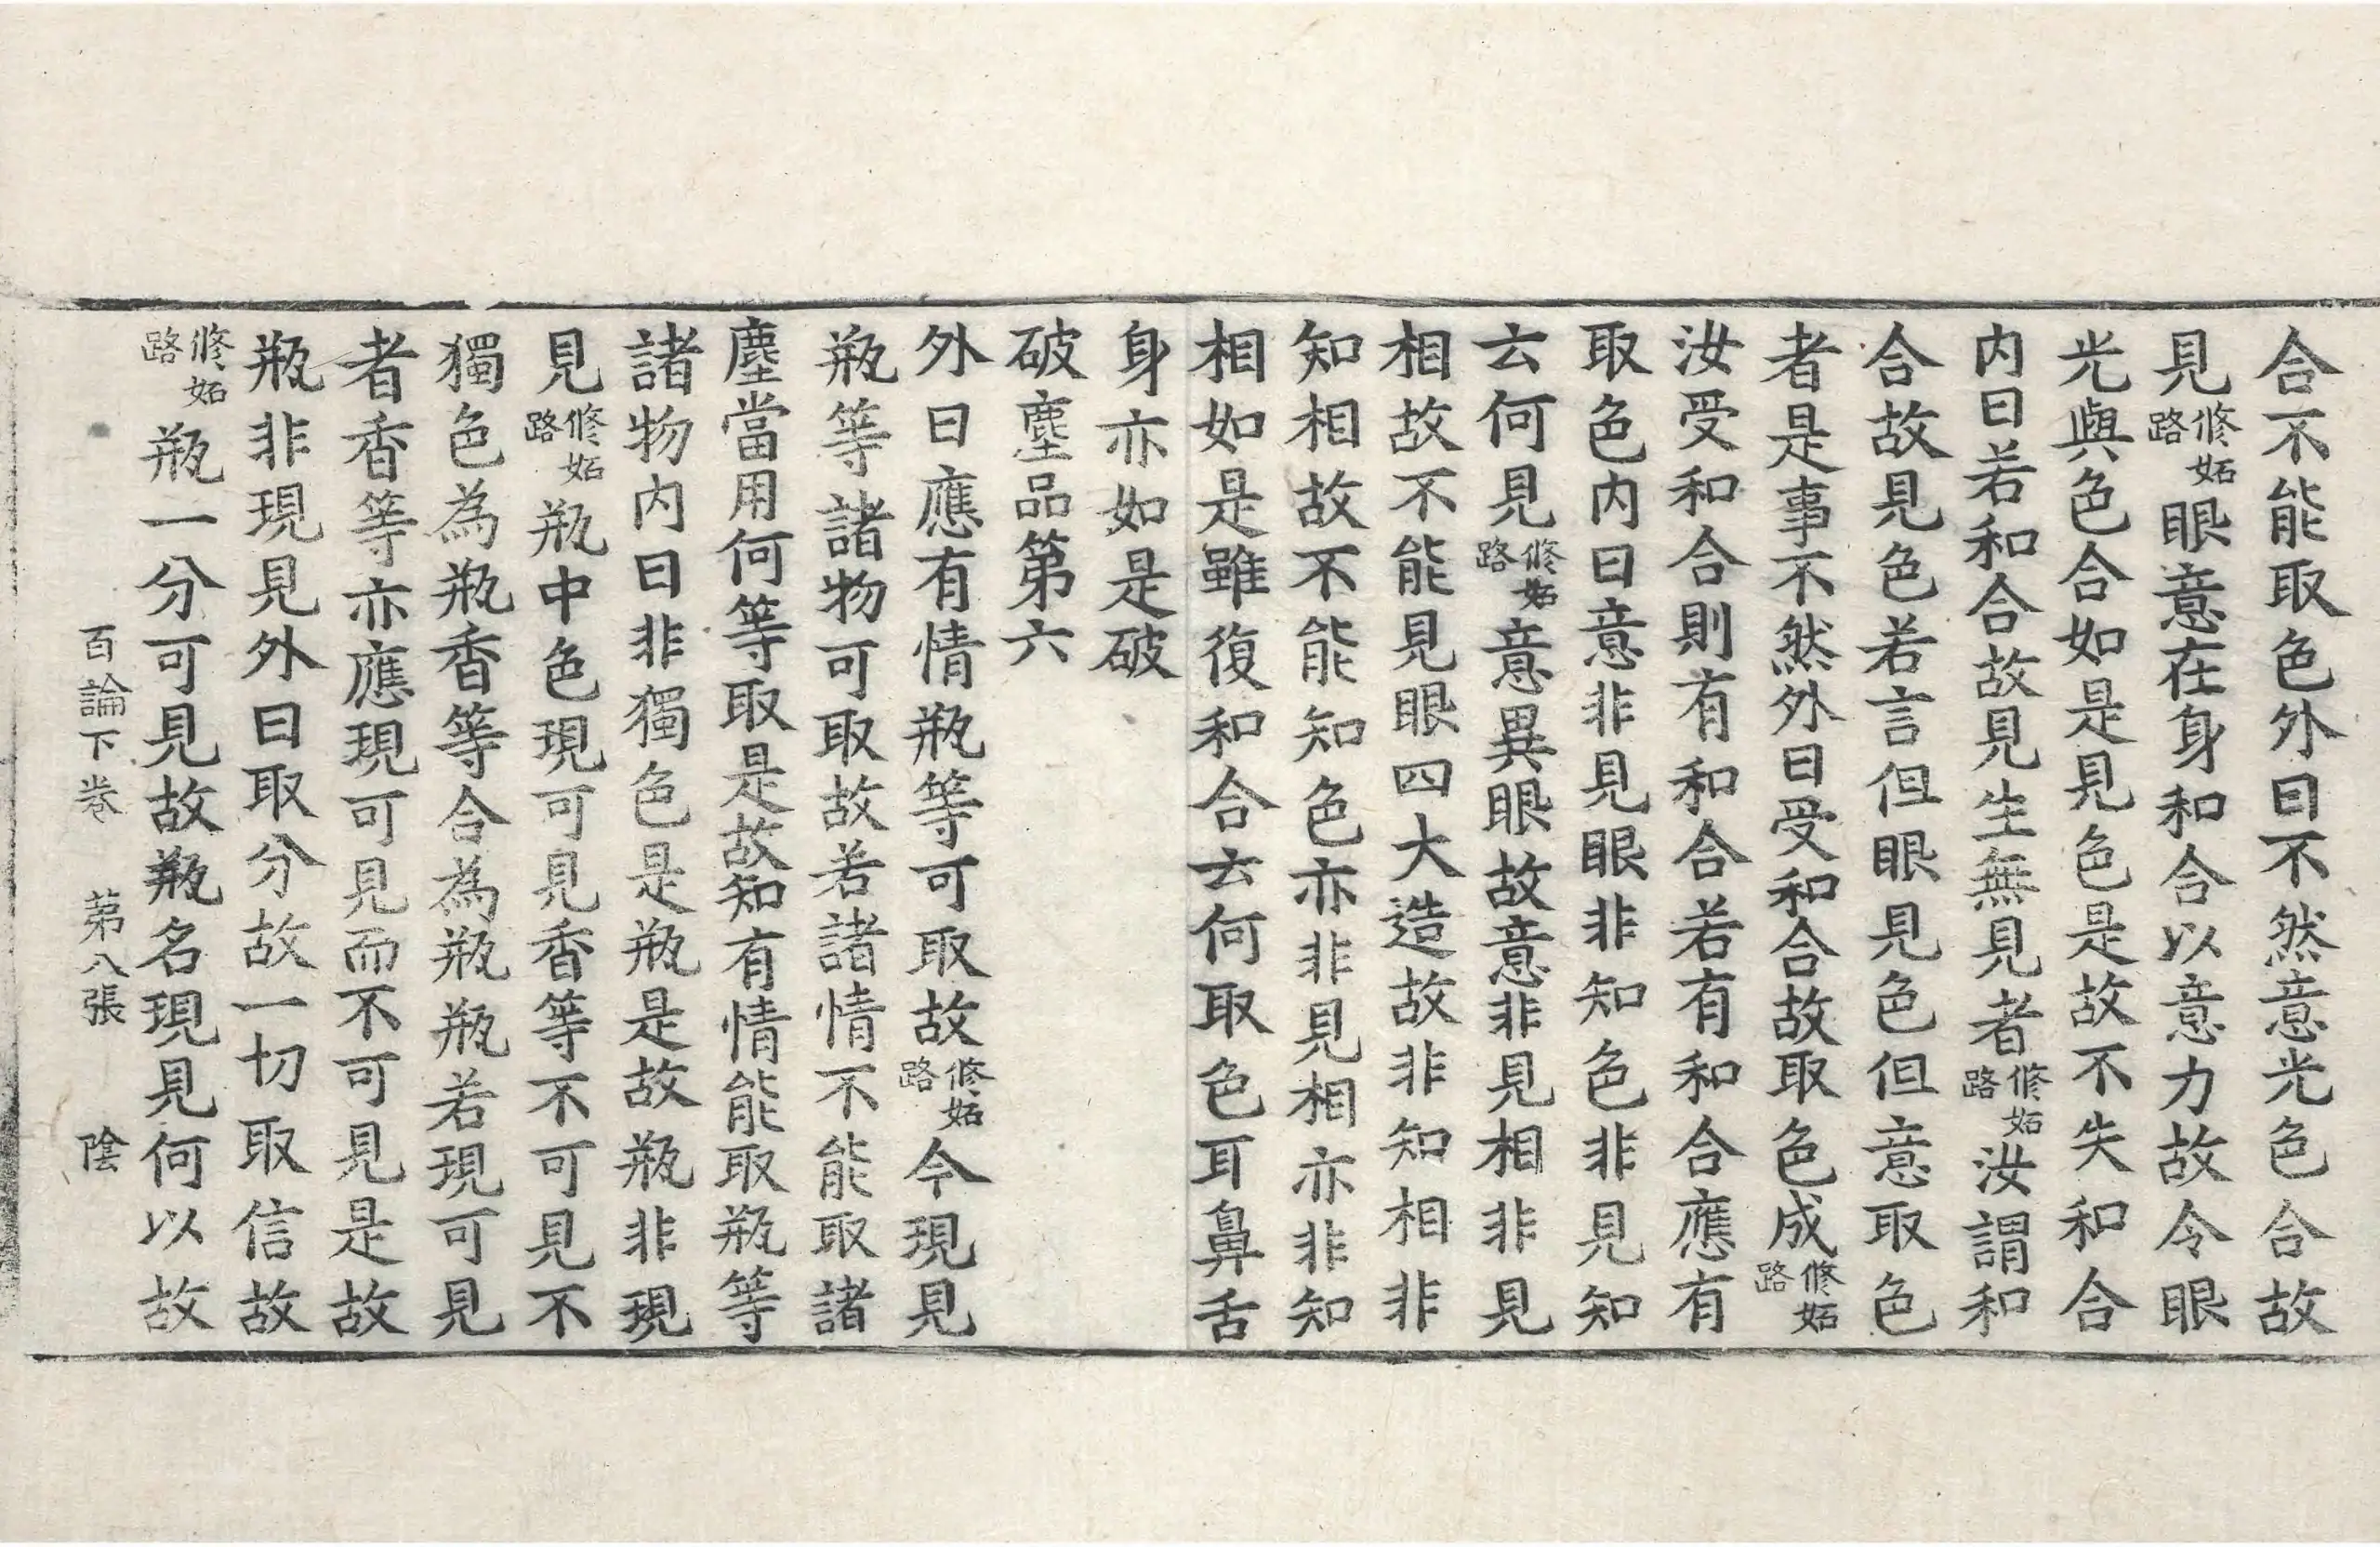 合不能取色外曰不然意光色合故
見修妬路眼意在身和合以意力故令眼
光與色合如是見色是故不失和合
内曰若和合故見生無見者修妬路汝謂和
合故見色若言但眼見色但意取色
者是事不然外曰受和合故取色成修妬路
汝受和合則有和合若有和合應有
取色内曰意非見眼非知色非見知
云何見修妬路意異眼故意非見相非見
相故不能見眼四大造故非知相非
知相故不能知色亦非見相亦非知
相如是雖復和合云何取色耳鼻舌
身亦如是破
破塵品第六
外曰應有情瓶等可取故修妬路今現見
瓶等諸物可取故若諸情不能取諸
塵當用何等取是故知有情能取瓶等
諸物内曰非獨色是瓶是故瓶非現
見修妬路瓶中色現可見香等不可見不
獨色為瓶香等合為瓶瓶若現可見
者香等亦應現可見而不可見是故
瓶非現見外曰取分故一切取信故
修妬路瓶一分可見故瓶名現見何以故
百論下卷 第八張 陰